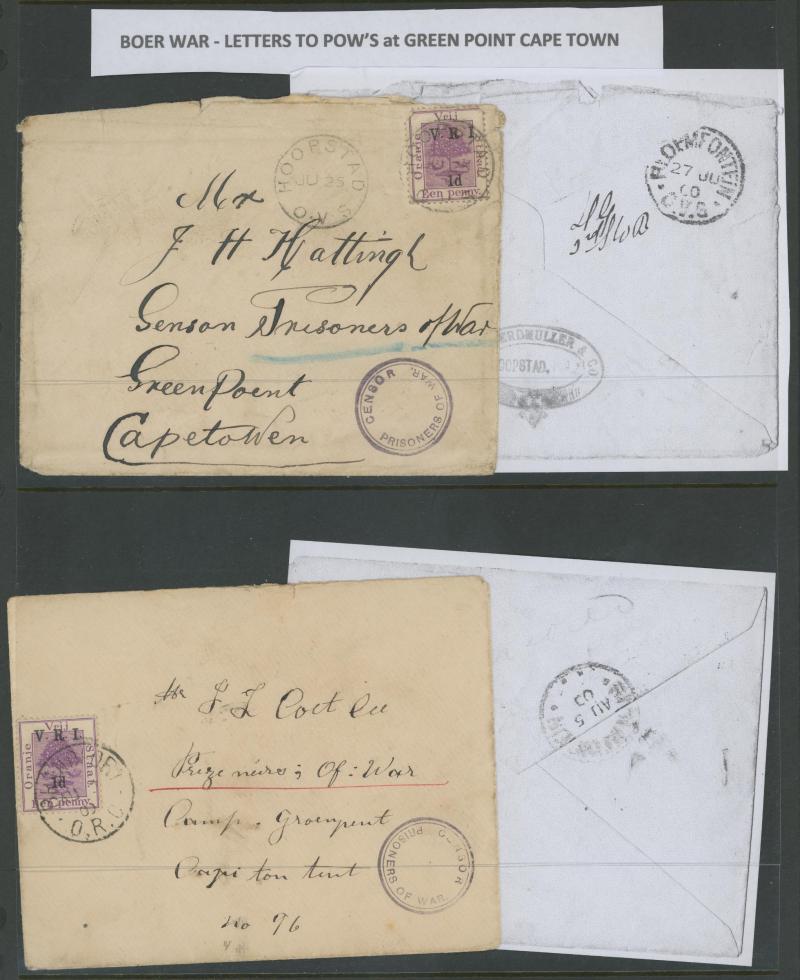 BOER WAR - LETTERS TO POW'S at GREEN POINT CAPE TOWN
Vrij
V. R. I.
Oranje
Staat
1d
Een penny
HOOPSTAD
JU 25
O.V.S
Mr
J H Hattingh
Genson Prisoners of War
Green Point
Capetowen
CENSOR
PRISONERS OF WAR.
BLOEMFONTEIN
27 JU
00
O.V.S.
ERDMULLER & Co
OOPSTAD,
Vrij
V. R. I.
Oranje
Staat
1d
Een penny
O.R.C
J L Coet
Prizeneirs; Of: War
Camp. Groenpent
Capi ton tent
No 76
CENSOR
PRISONERS OF WAR.
AU 5
00